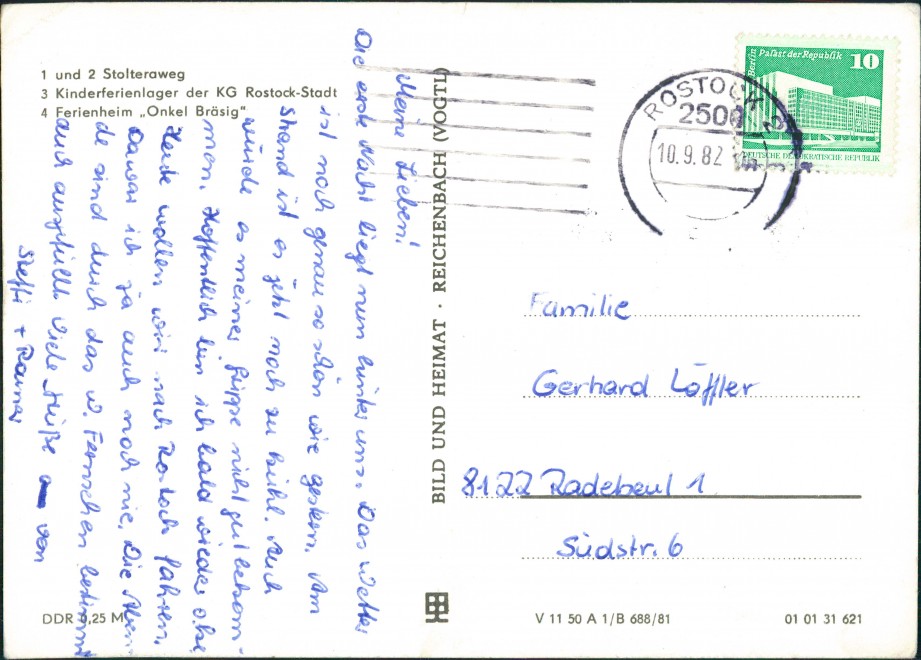 1 und 2 Stolteraweg
3 Kinderferienlager der KG Rostock-Stadt
4 Ferienheim „Onkel Bräsig“
Meine Lieben!
Die erste Nacht liegt nun hinter uns. Das Wetter
ist noch genau so schön wie gestern. Am
Strand ist es jetzt noch zu kühl. Auch
würde es meiner Grippe nicht gut bekom-
men. Hoffentlich bin ich bald wieder ohne.
Heute wollen wir nach Rostock fahren.
Davon ich ja auch noch nie. Die Aben-
de sind durch das Fernsehen bestimmt
auch ausgefüllt. Viele Grüße von
Steffi + Rainer
DDR 0,25 M
BILD UND HEIMAT · REICHENBACH (VOGTL)
Berlin
Palast der Republik
10
DEUTSCHE DEMOKRATISCHE REPUBLIK
ROSTOCK
2500
10.9.82
Familie
Gerhard Löffler
8122 Radebeul 1
Südstr. 6
V 11 50 A 1/B 688/81
01 01 31 621